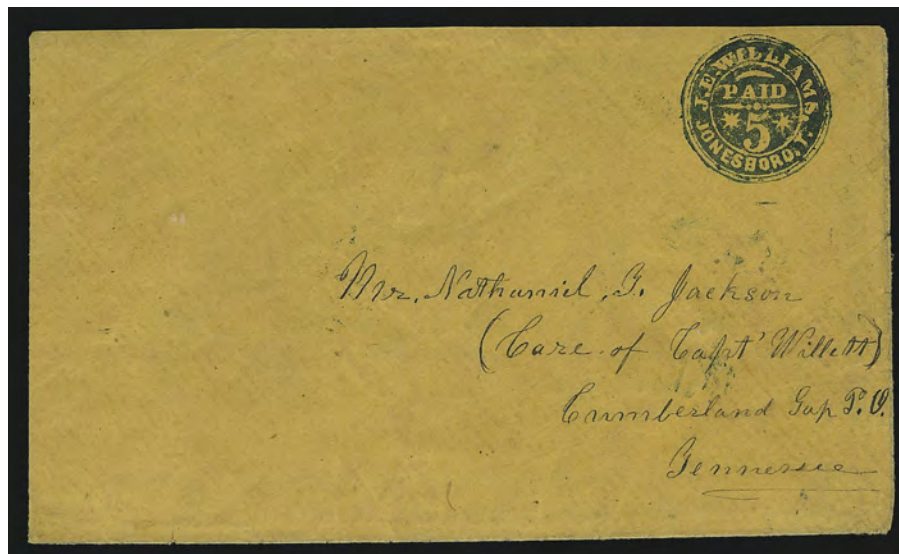 J.E. WILLIAMS,
PAID
5
JONESBORO, T.
Mr. Nathaniel, G. Jackson
(Care of Capt' Willett)
Cumberland Gap P.O.
Tennessee